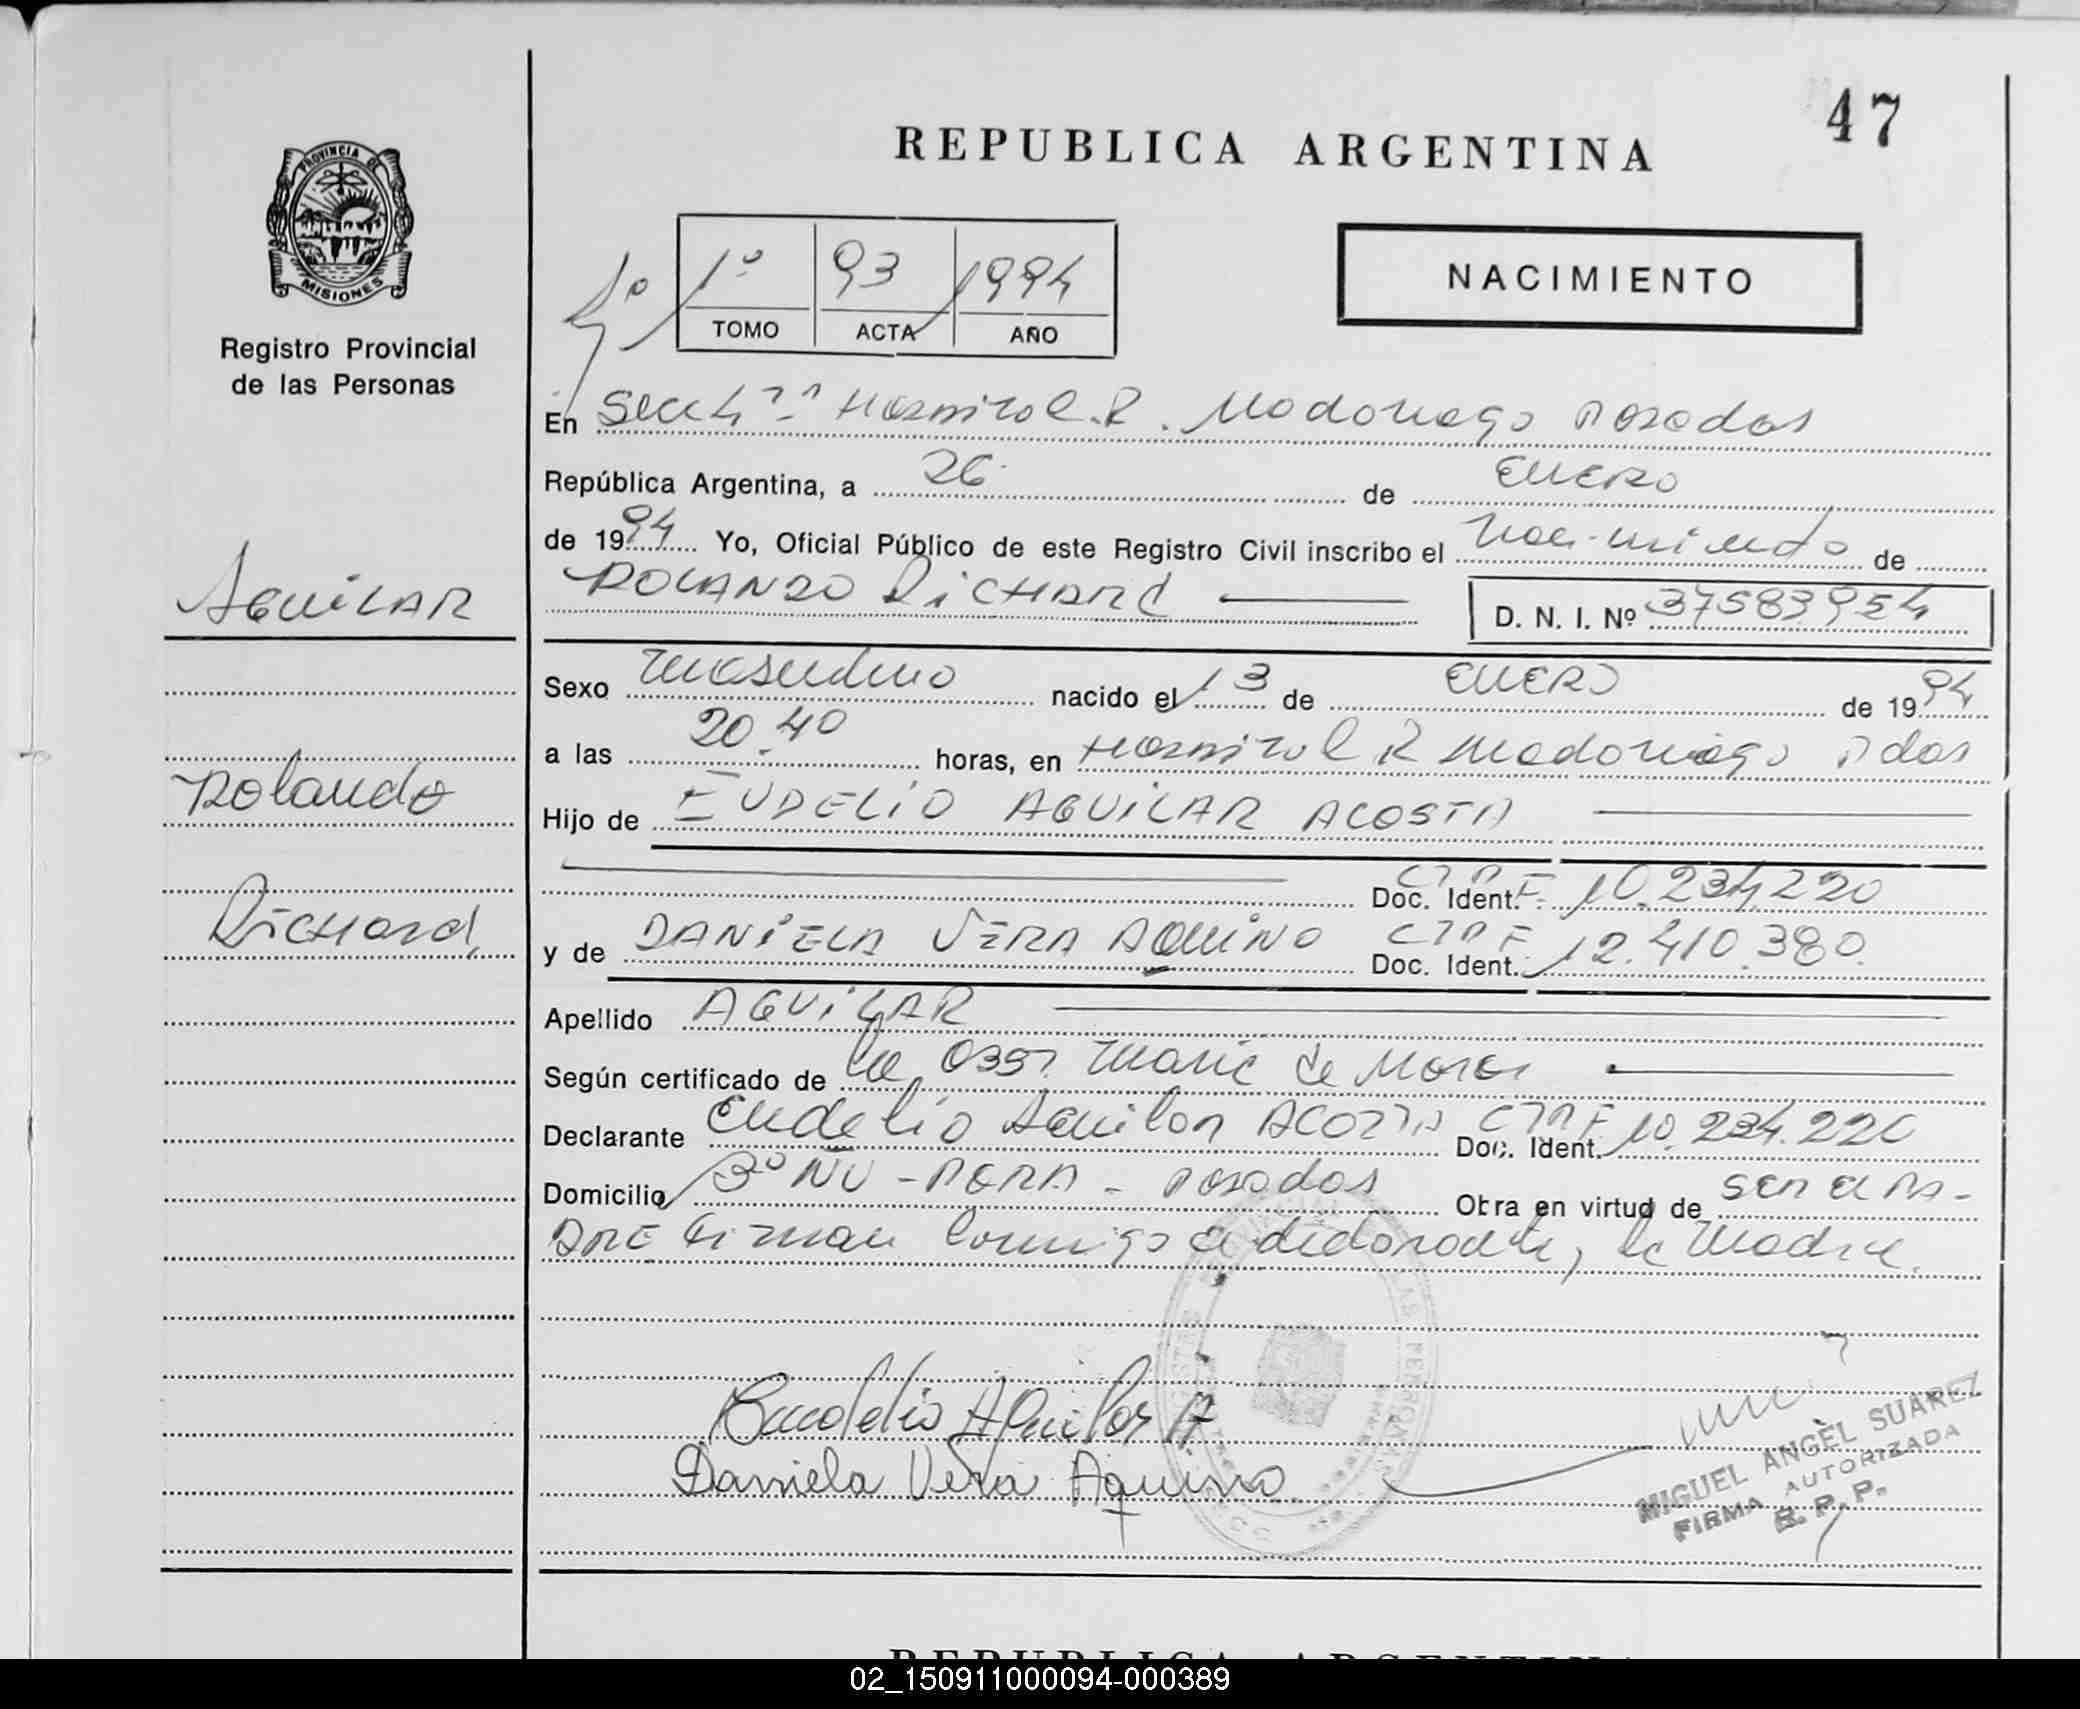 47
REPUBLICA ARGENTINA
PROVINCIA DE
MISIONES
Registro Provincial
de las Personas
1º 93 1994
TOMO ACTA AÑO
NACIMIENTO
En Secc 4ta Hospital R. Madariaga Posadas
República Argentina, a 26 de ENERO
de 1994 Yo, Oficial Público de este Registro Civil inscribo el nacimiento de
ROLANDO RICHARD
D. N. I. Nº 37583954
AGUILAR
Rolando
Richard
Sexo masculino nacido el 13 de ENERO de 1994
a las 20.40 horas, en Hospital R Madariaga Pdas
Hijo de EUDELIO AGUILAR ACOSTA
Doc. Ident. 10.234.220
y de DANIELA VERA AQUINO Doc. Ident. 12.410.380
Apellido AGUILAR
Según certificado de la Obst. Maria de
Declarante Eudelio Aguilar ACOSTA Doc. Ident. 10.234.220
Domicilio Bº ÑU-PORA - Posadas Obra en virtud de ser el PA-
DRE firman conmigo el declarante, la madre.
Eudelio Aguilar A
Daniela Vera Aquino
MIGUEL ANGEL SUAREZ
FIRMA AUTORIZADA
R. P. P.
REPUBLICA ARGENTINA
02_150911000094-000389